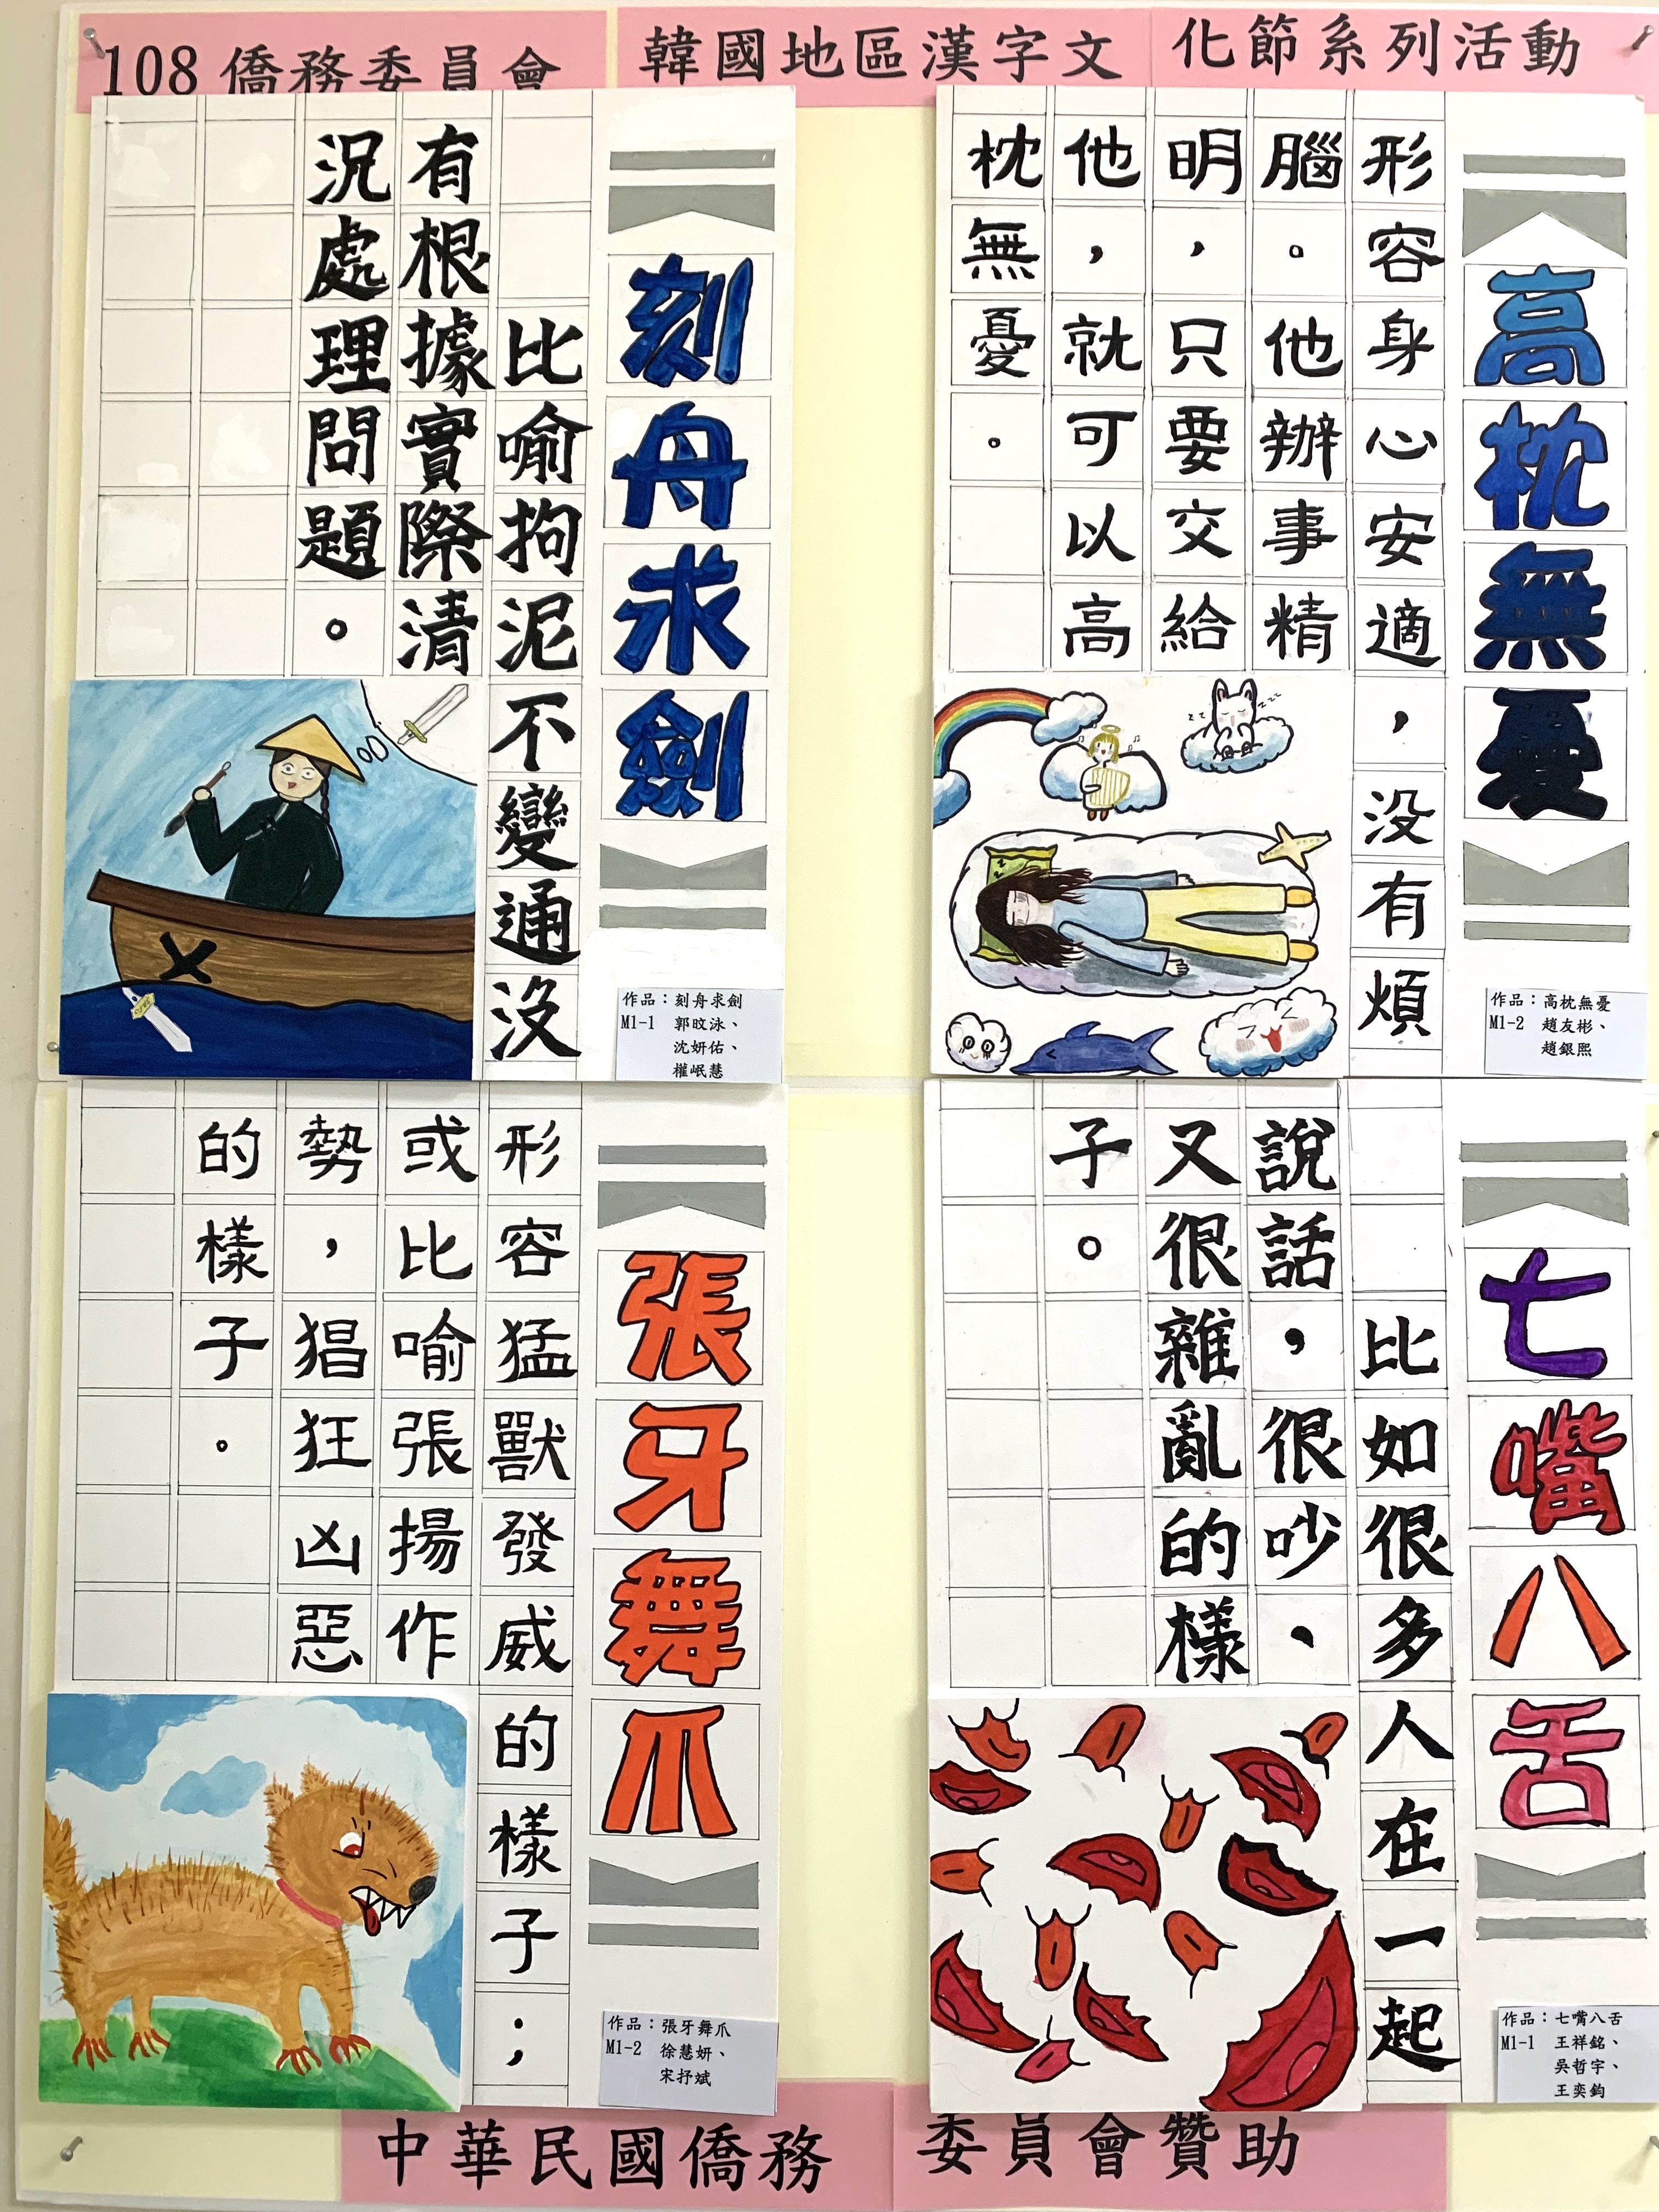 108僑務委員會 韓國地區漢字文 化節系列活動
刻舟求劍
比喻拘泥不變通沒
有根據實際清
況處理問題。
作品：刻舟求劍
M1-1 郭旼泳、
沈妍佑、
權岷慧
高枕無憂
形容身心安適，沒有煩
腦。他辦事精
明，只要交給
他，就可以高
枕無憂。
作品：高枕無憂
M1-2 趙友彬、
趙銀熙
張牙舞爪
形容猛獸發威的樣子；
或比喻張揚作
勢，猖狂凶惡
的樣子。
作品：張牙舞爪
M1-2 徐慧妍、
宋抒斌
七嘴八舌
比如很多人在一起
說話，很吵、
又很雜亂的樣
子。
作品：七嘴八舌
M1-1 王祥銘、
吳哲宇、
王奕鈞
中華民國僑務 委員會贊助